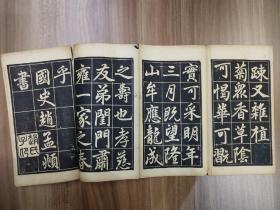 疎又雜植
菊衆香草陰
可愒華可翫
實可采明年
三月既望隆
山牟應龍成
之壽也孝慈
友弟閨門肅
雍一家之春
乎
國史趙孟頫
書
趙氏子昂